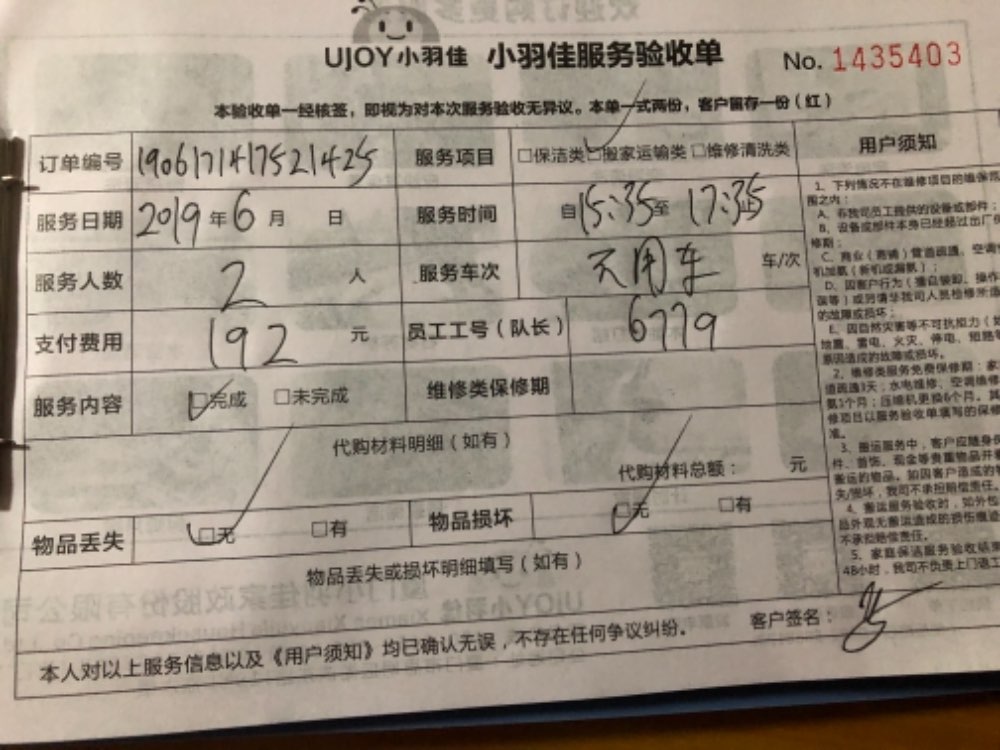 UJOY小羽佳 小羽佳服务验收单 No. 1435403
本验收单一经核签，即视为对本次服务验收无异议。本单一式两份，客户留存一份（红）
订单编号 1906171417521425 服务项目 □保洁类 □搬家运输类 □维修清洗类 用户须知
服务日期 2019年6月 日 服务时间 自15:35至17:35止
服务人数 2 人 服务车次 不用车 车/次
支付费用 192 元 员工工号（队长） 6779
服务内容 □完成 □未完成 维修类保修期
代购材料明细（如有）
代购材料总额： 元
物品丢失 □无 □有 物品损坏 □无 □有
物品丢失或损坏明细填写（如有）
本人对以上服务信息以及《用户须知》均已确认无误，不存在任何争议纠纷。 客户签名：
1、下列情况不在维修项目的维保范
围之内：
A、非我司员工提供的设备或部件；
B、设备或部件本身已经超过出厂保
修期；
C、商业（商铺）管道疏通、空调
机加氨（新机或漏氨）；
D、因客户行为（擅自装卸、操作
误等）或另请非我司人员检修所造
的故障或损坏；
E、因自然灾害等不可抗力（
地震、雷电、火灾、停电、短路
原因造成的故障或损坏。
2、维修类服务免费保修期：家
道疏通3天；水电维修、空调维修
氨1个月；压缩机更换6个月。其
修项目以服务验收单填写的保修
准。
3、搬运服务中，客户应随身
件、首饰、现金等贵重物品并
搬运的物品。如因客户造成的
失/损坏，我司不承担赔偿责任。
4、搬运服务验收时，如外包
品外观无搬运造成的损伤痕迹
不承担赔偿责任。
5、家庭保洁服务验收结束
48小时，我司不负责上门返工